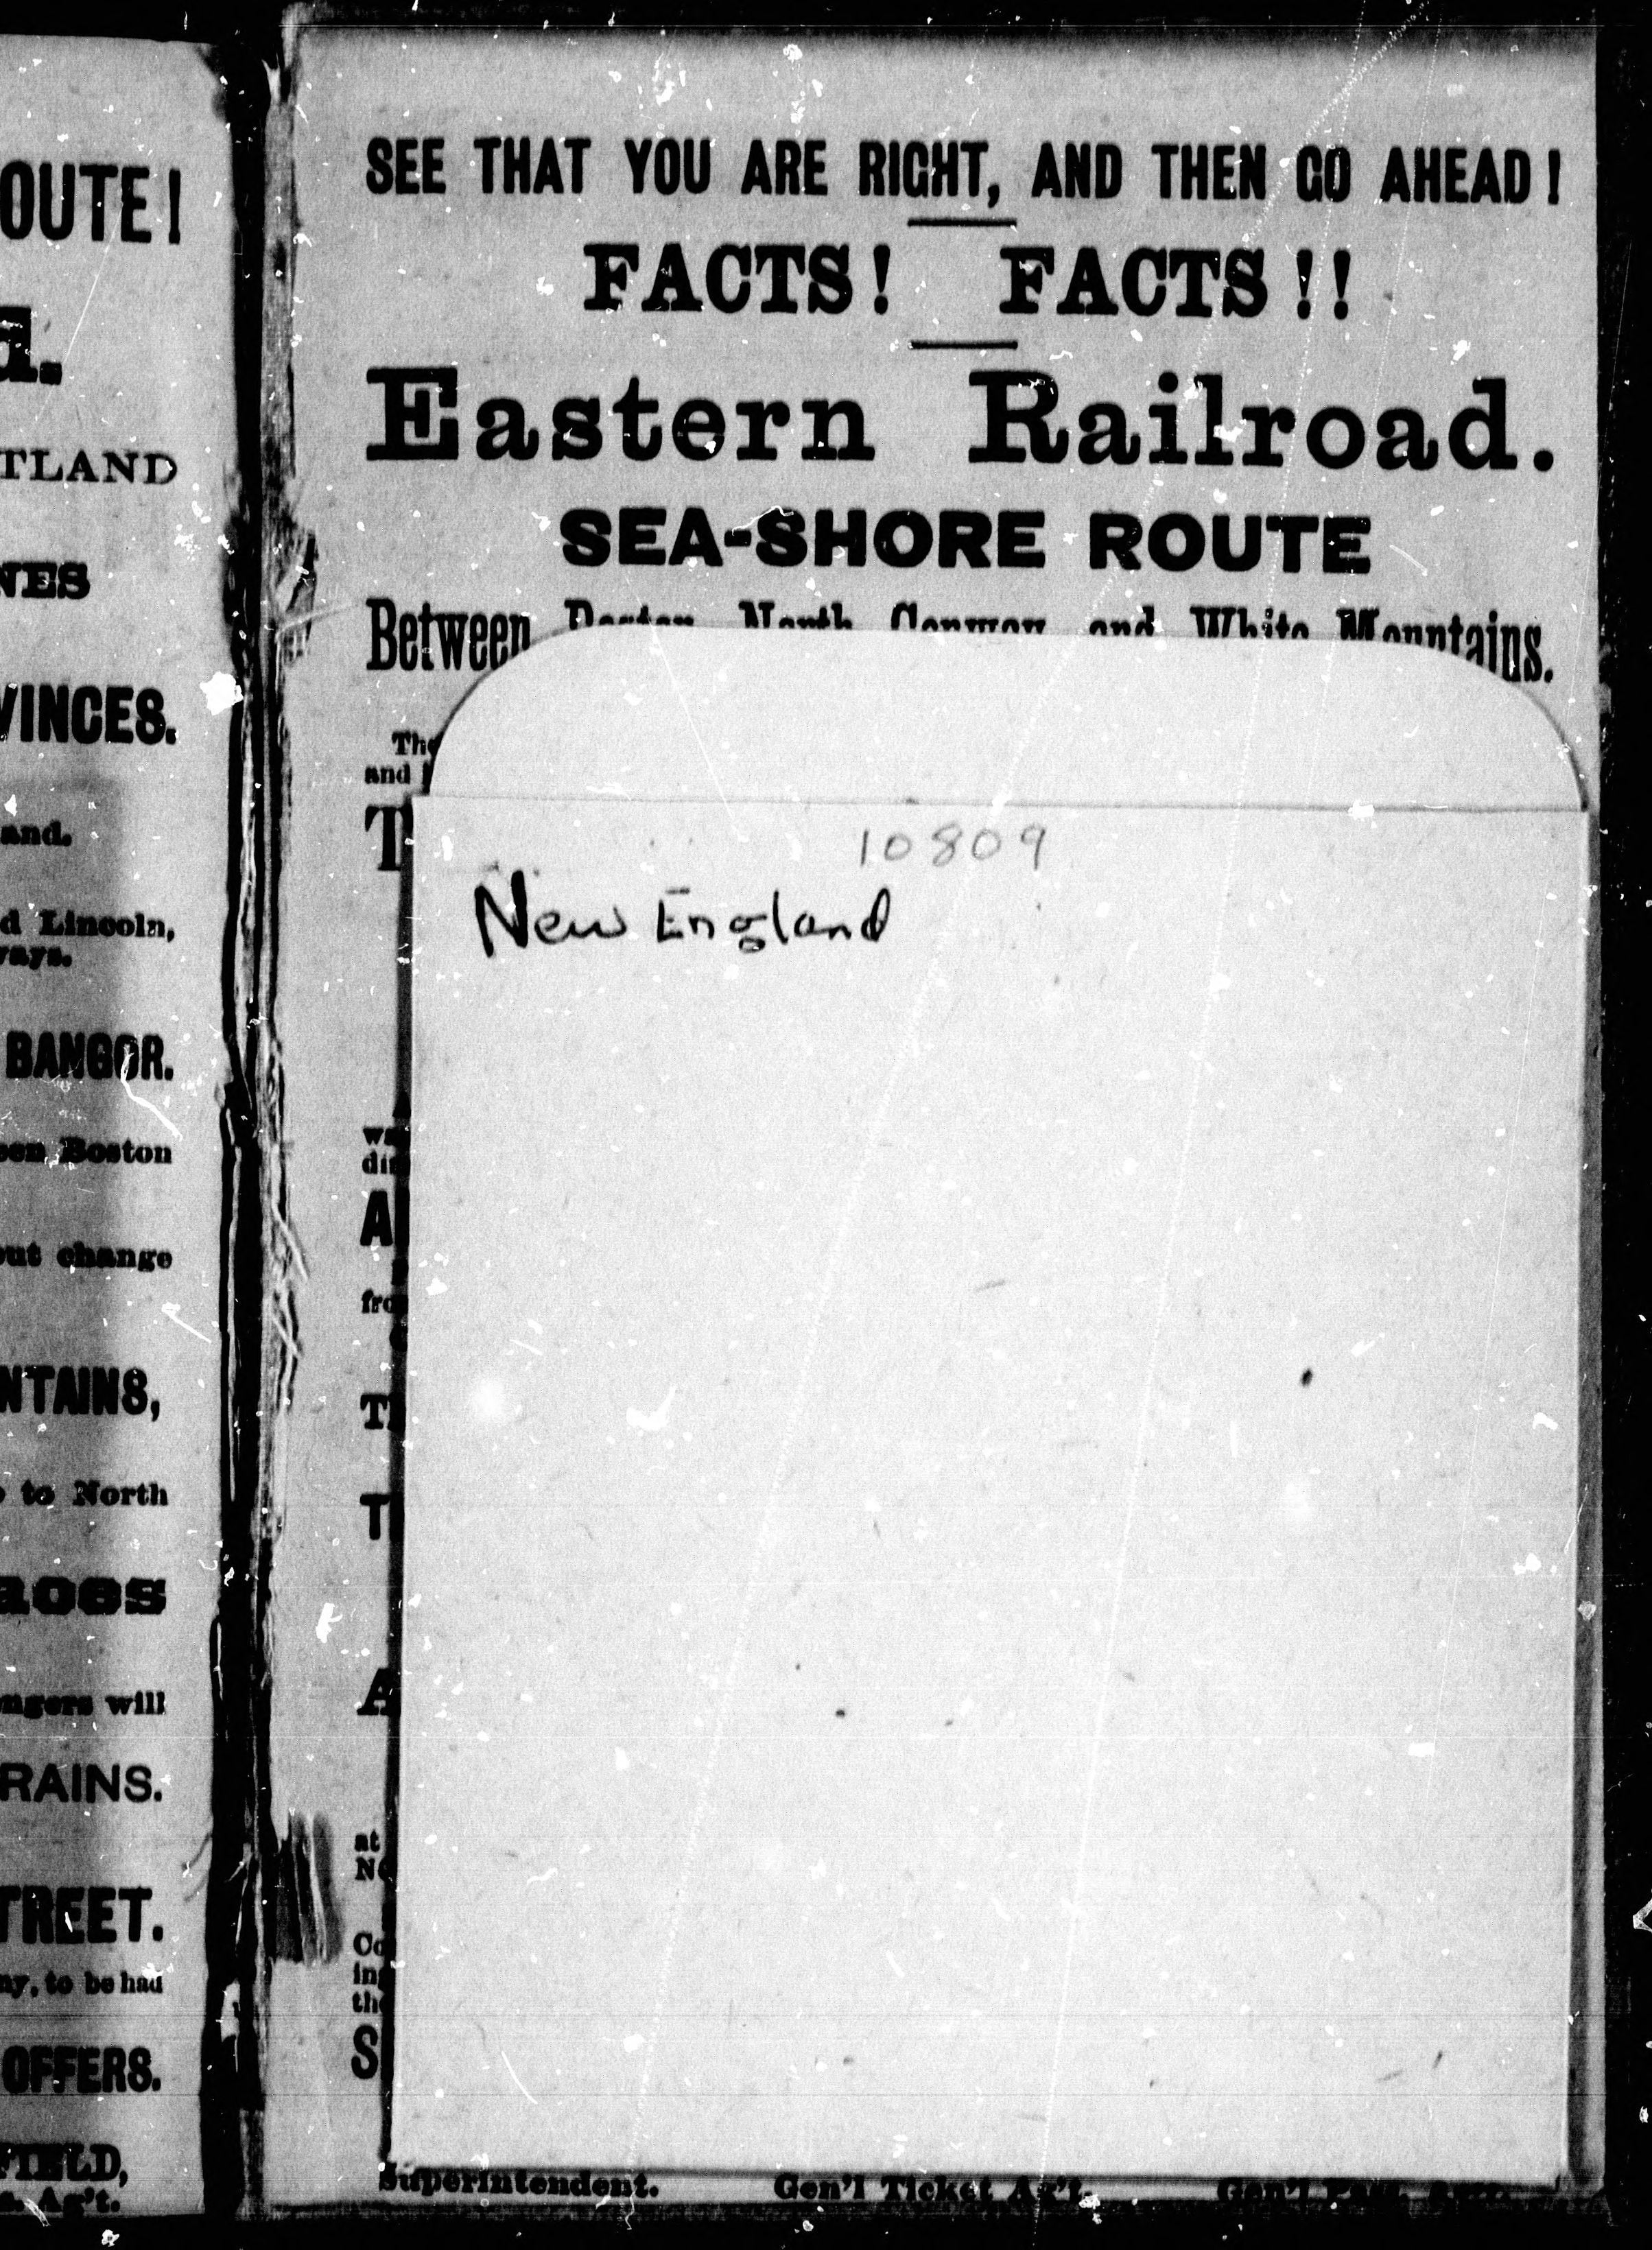 OUTE!
d.
TLAND
NES
VINCES.
and.
d Lincoln,
ways.
BANGOR.
een Boston
out change
NTAINS,
to North
aces
ngers will
RAINS.
TREET.
ny, to be had
OFFERS.
FIELD,
s. Ag't.
SEE THAT YOU ARE RIGHT, AND THEN GO AHEAD!
FACTS! FACTS!!
Eastern Railroad.
SEA-SHORE ROUTE
Between Boston, North Conway and White Mountains.
The
and
T
10809
New England
wa
di
A
fro
T
T
A
at
No
Co
in
the
S
Superintendent. Gen'l Ticket Ag't. Gen'l Pass. Ag't.